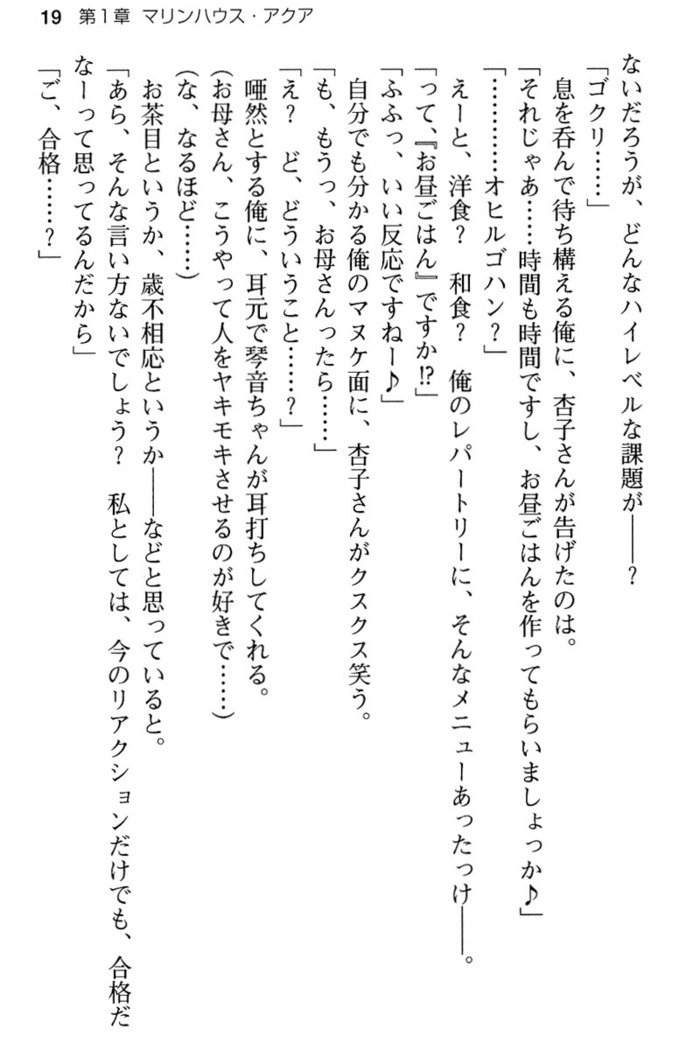 19 第1章 マリンハウス・アクア
ないだろうが、どんなハイレベルな課題が――?
「ゴクリ……」
　息を呑んで待ち構える俺に、杏子さんが告げたのは。
「それじゃあ……時間も時間ですし、お昼ごはんを作ってもらいましょっか♪」
「…………オヒルゴハン?」
　えーと、洋食?　和食?　俺のレパートリーに、そんなメニューあったっけ――。
「って、『お昼ごはん』ですか!?」
「ふふっ、いい反応ですねー♪」
　自分でも分かる俺のマヌケ面に、杏子さんがクスクス笑う。
「も、もうっ、お母さんったら……」
「え?　ど、どういうこと……?」
　唖然とする俺に、耳元で琴音ちゃんが耳打ちしてくれる。
(お母さん、こうやって人をヤキモキさせるのが好きで……)
(な、なるほど……)
　お茶目というか、歳不相応というか――などと思っていると。
「あら、そんな言い方ないでしょう?　私としては、今のリアクションだけでも、合格だ
なーって思ってるんだから」
「ご、合格……?」